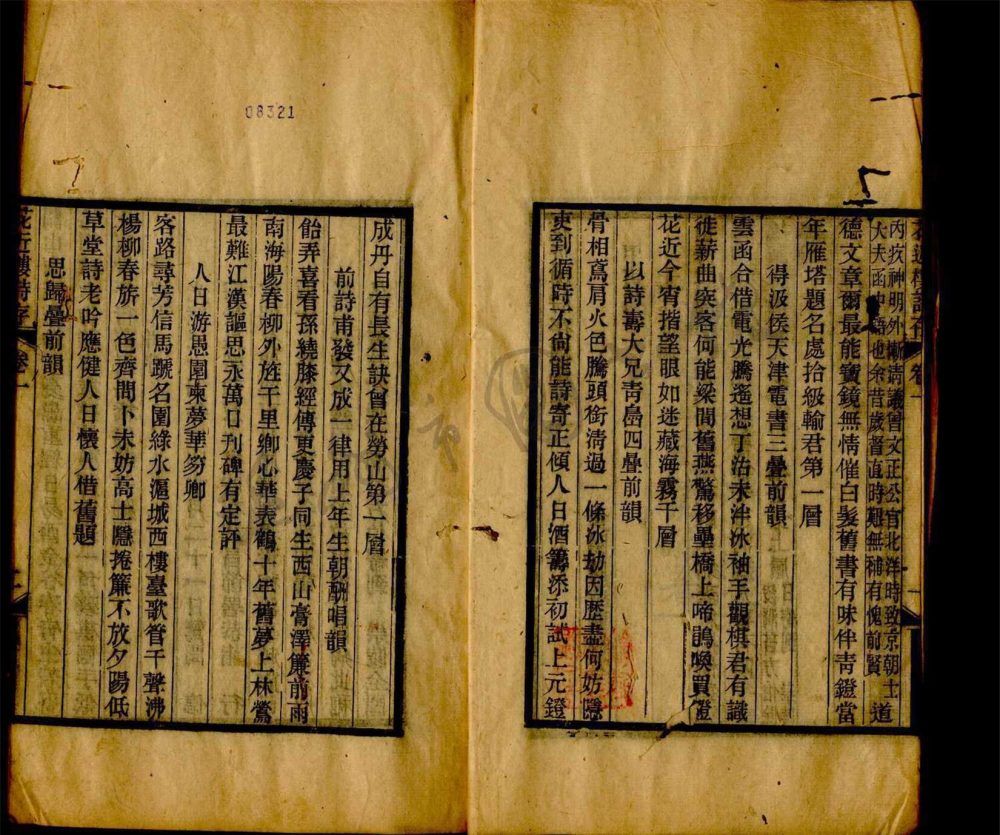 內疚神明外慚清議曾文正公官北洋時致京朝士
大夫函中語也余昔歲督直時艱無補有愧前賢
道
德文章爾最能寶鏡無情催白髮舊書有味伴靑鐙當
年雁塔題名處拾級輸君第一層
得汲侯天津電書三疊前韻
雲函合借電光騰遙想丁沽未泮冰袖手觀棋君有識
徙薪曲突客何能梁間舊燕驚移壘橋上啼鵑喚買鐙
花近今宵揩望眼如迷藏海霧千層
以詩壽大兄靑島四疊前韻
骨相鳶肩火色騰頭銜淸過一條冰劫因歷盡何妨隱
吏到循時不尙能詩寄正傾人日酒籌添初試上元鐙
成丹自有長生訣曾在勞山第一層
前詩甫發又成一律用上年生朝酬唱韻
飴弄喜看孫繞膝經傳更慶子同生西山膏澤簾前雨
南海陽春柳外旌千里鄉心華表鶴十年舊夢上林鶯
最難江漢謳思永萬口刊碑有定評
人日游愚園柬夢華笏卿
客路尋芳信馬蹏名園綠水滬城西樓臺歌管千聲沸
楊柳春旂一色齊問卜未妨高士隱捲簾不放夕陽低
草堂詩老吟應健人日懷人借舊題
思歸疊前韻
花近樓詩存
卷一
08321